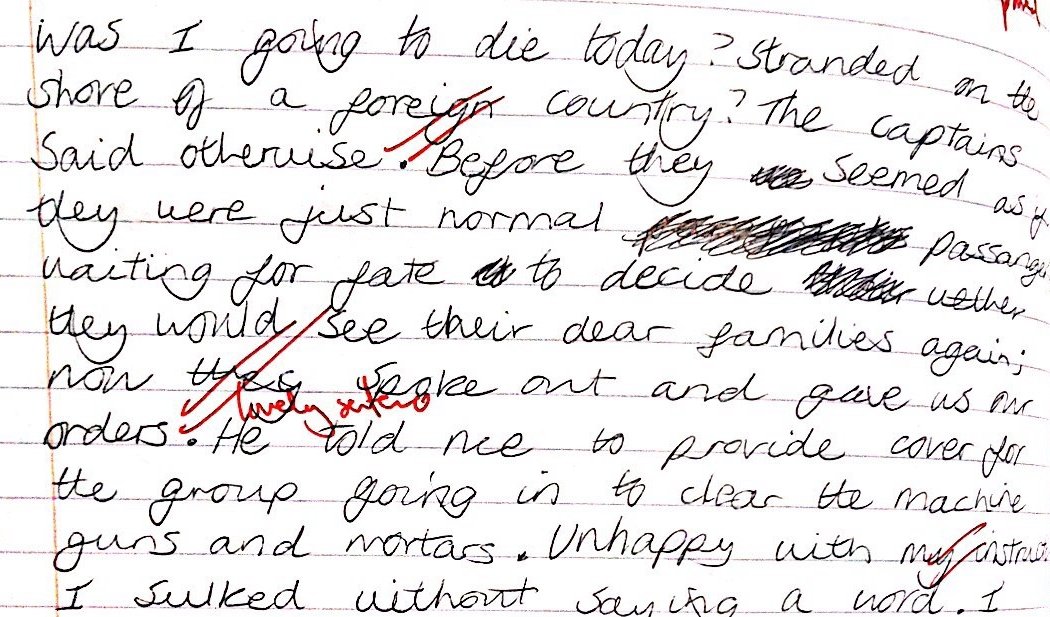 was I going to die today? Stranded on the
shore of a foreign country? The captains
said otherwise. Before they seemed as if
they were just normal passange
waiting for fate to decide wether
they would see their dear families again;
now they spoke out and gave us our
lovely sentence
orders. He told me to provide cover for
the group going in to clear the machine
guns and mortars. Unhappy with my instruc
I sulked without saying a word. I